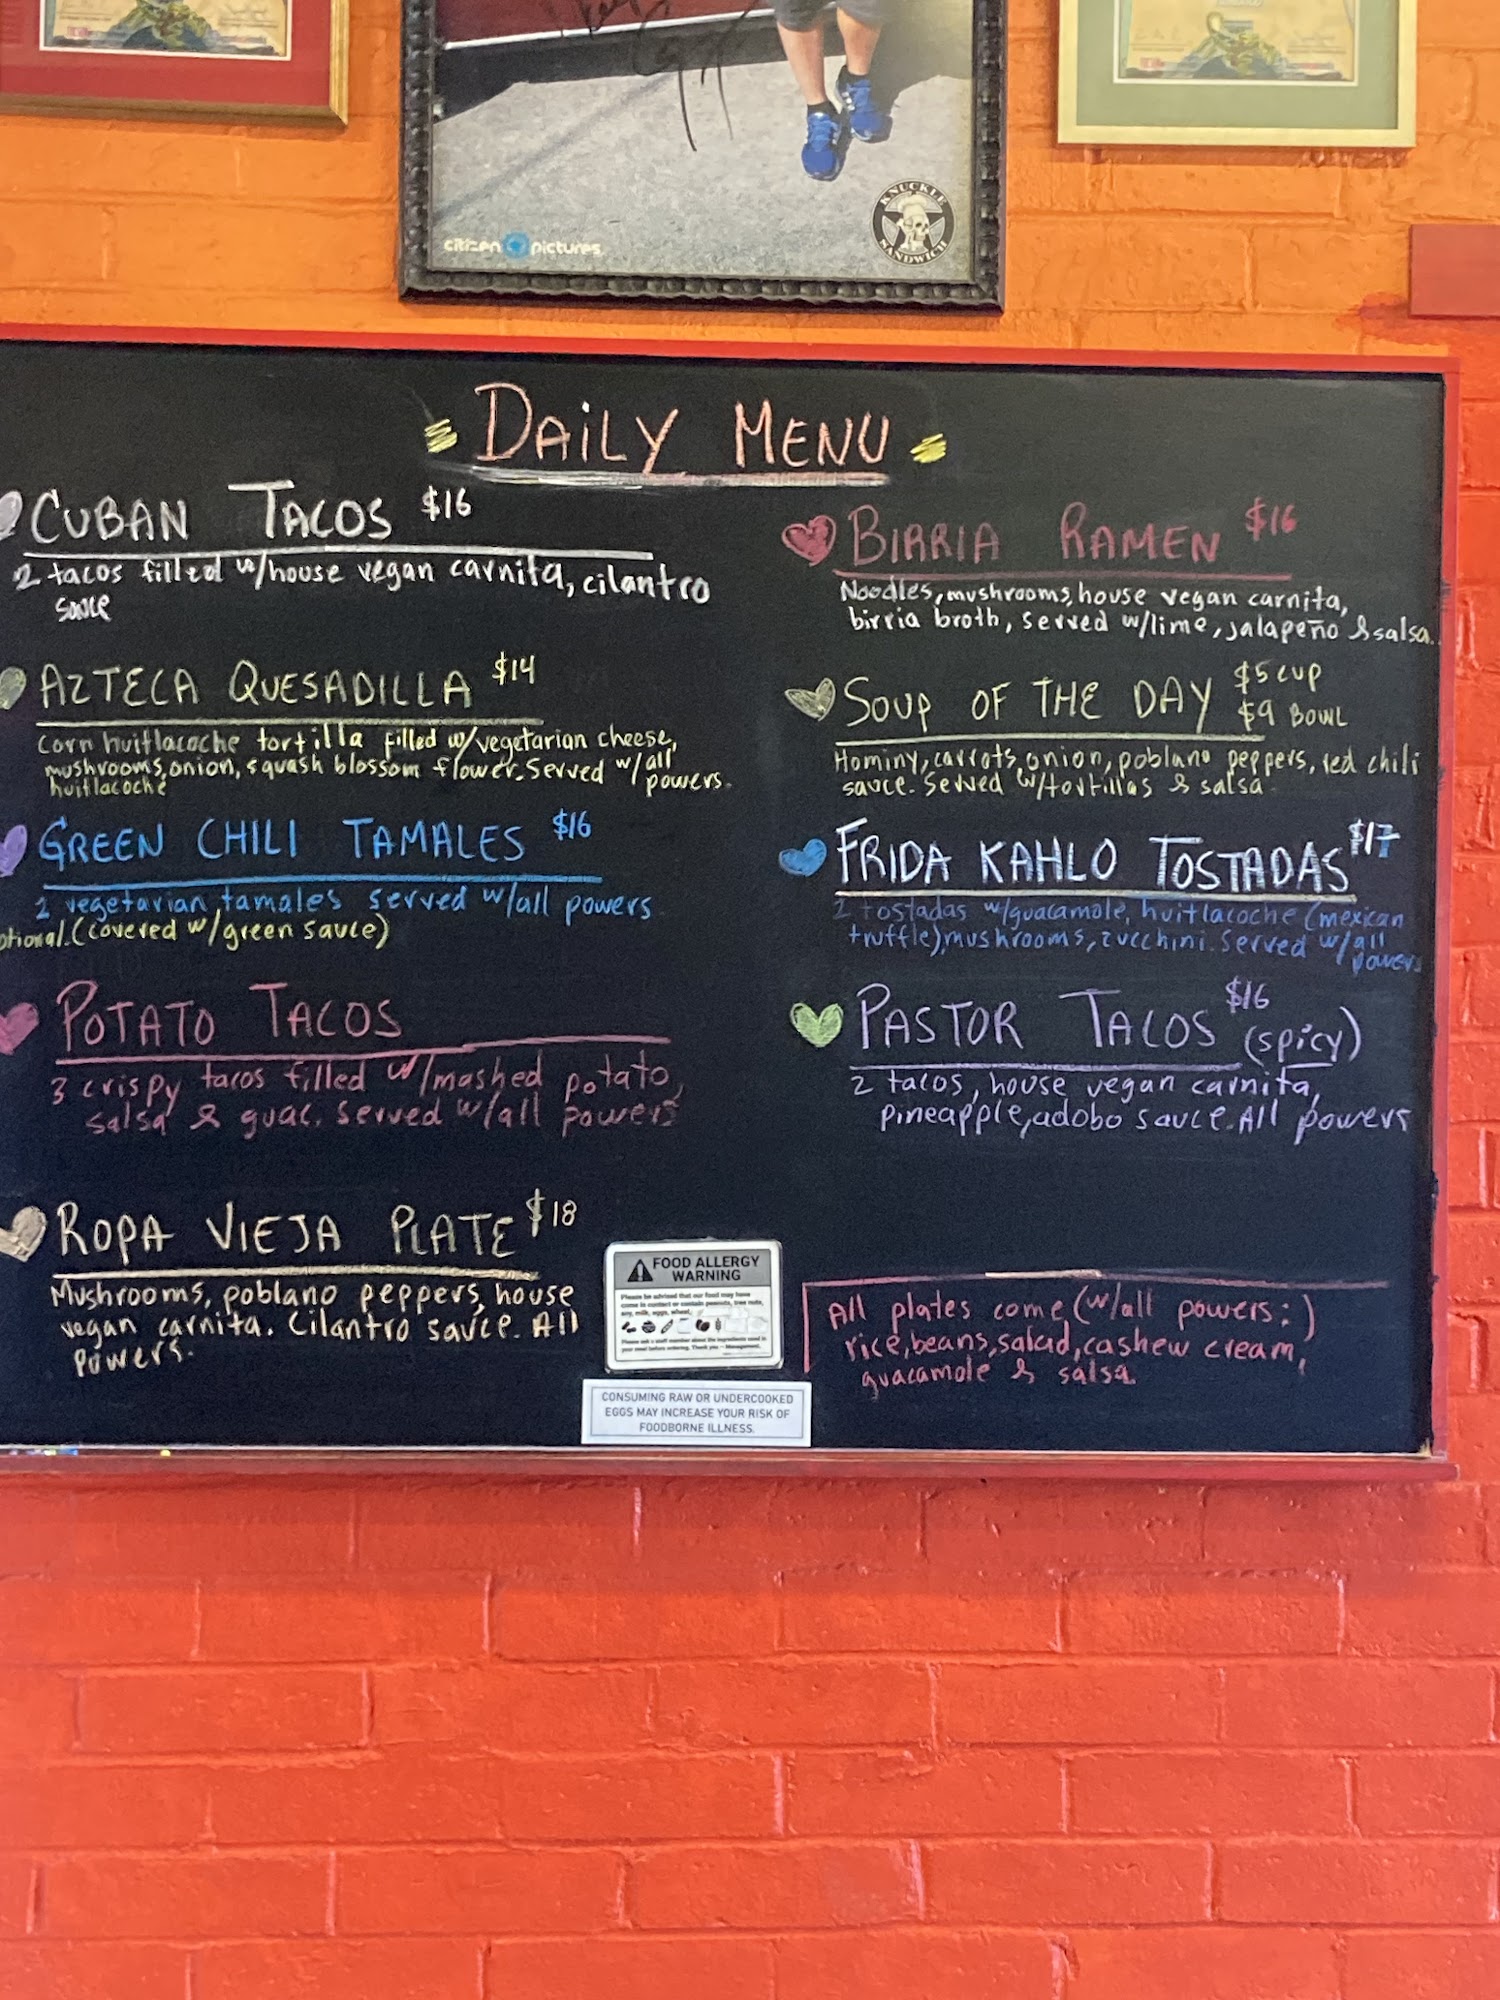 citizen pictures
KNUCKLE
SANDWICH
DAILY MENU
CUBAN TACOS $16
2 tacos filled w/house vegan carnita, cilantro
sauce
AZTECA QUESADILLA $14
corn huitlacoche tortilla filled w/vegetarian cheese,
mushrooms, onion, squash blossom flower. Served w/all
huitlacoche powers.
GREEN CHILI TAMALES $16
2 vegetarian tamales served w/all powers
(covered w/green sauce)
POTATO TACOS
3 crispy tacos filled w/mashed potato,
salsa & guac. Served w/all powers
ROPA VIEJA PLATE $18
Mushrooms, poblano peppers, house
vegan carnita. Cilantro sauce. All
powers.
BIRRIA RAMEN $16
Noodles, mushrooms, house vegan carnita,
birria broth, served w/lime, jalapeño & salsa.
SOUP OF THE DAY $5 CUP
$9 BOWL
Hominy, carrots, onion, poblano peppers, red chili
sauce. Served w/tortillas & salsa.
FRIDA KAHLO TOSTADAS $17
2 tostadas w/guacamole, huitlacoche (mexican
truffle), mushrooms, zucchini. Served w/all
powers
PASTOR TACOS $16
(spicy)
2 tacos, house vegan carnita,
pineapple, adobo sauce. All powers
FOOD ALLERGY
WARNING
Please be advised that our food may have
come in contact or contain peanuts, tree nuts,
soy, milk, eggs, wheat,
Please ask a staff member about the ingredients used in
your meal before ordering. Thank you - Management.
CONSUMING RAW OR UNDERCOOKED
EGGS MAY INCREASE YOUR RISK OF
FOODBORNE ILLNESS.
All plates come (w/all powers:)
rice, beans, salad, cashew cream,
guacamole & salsa